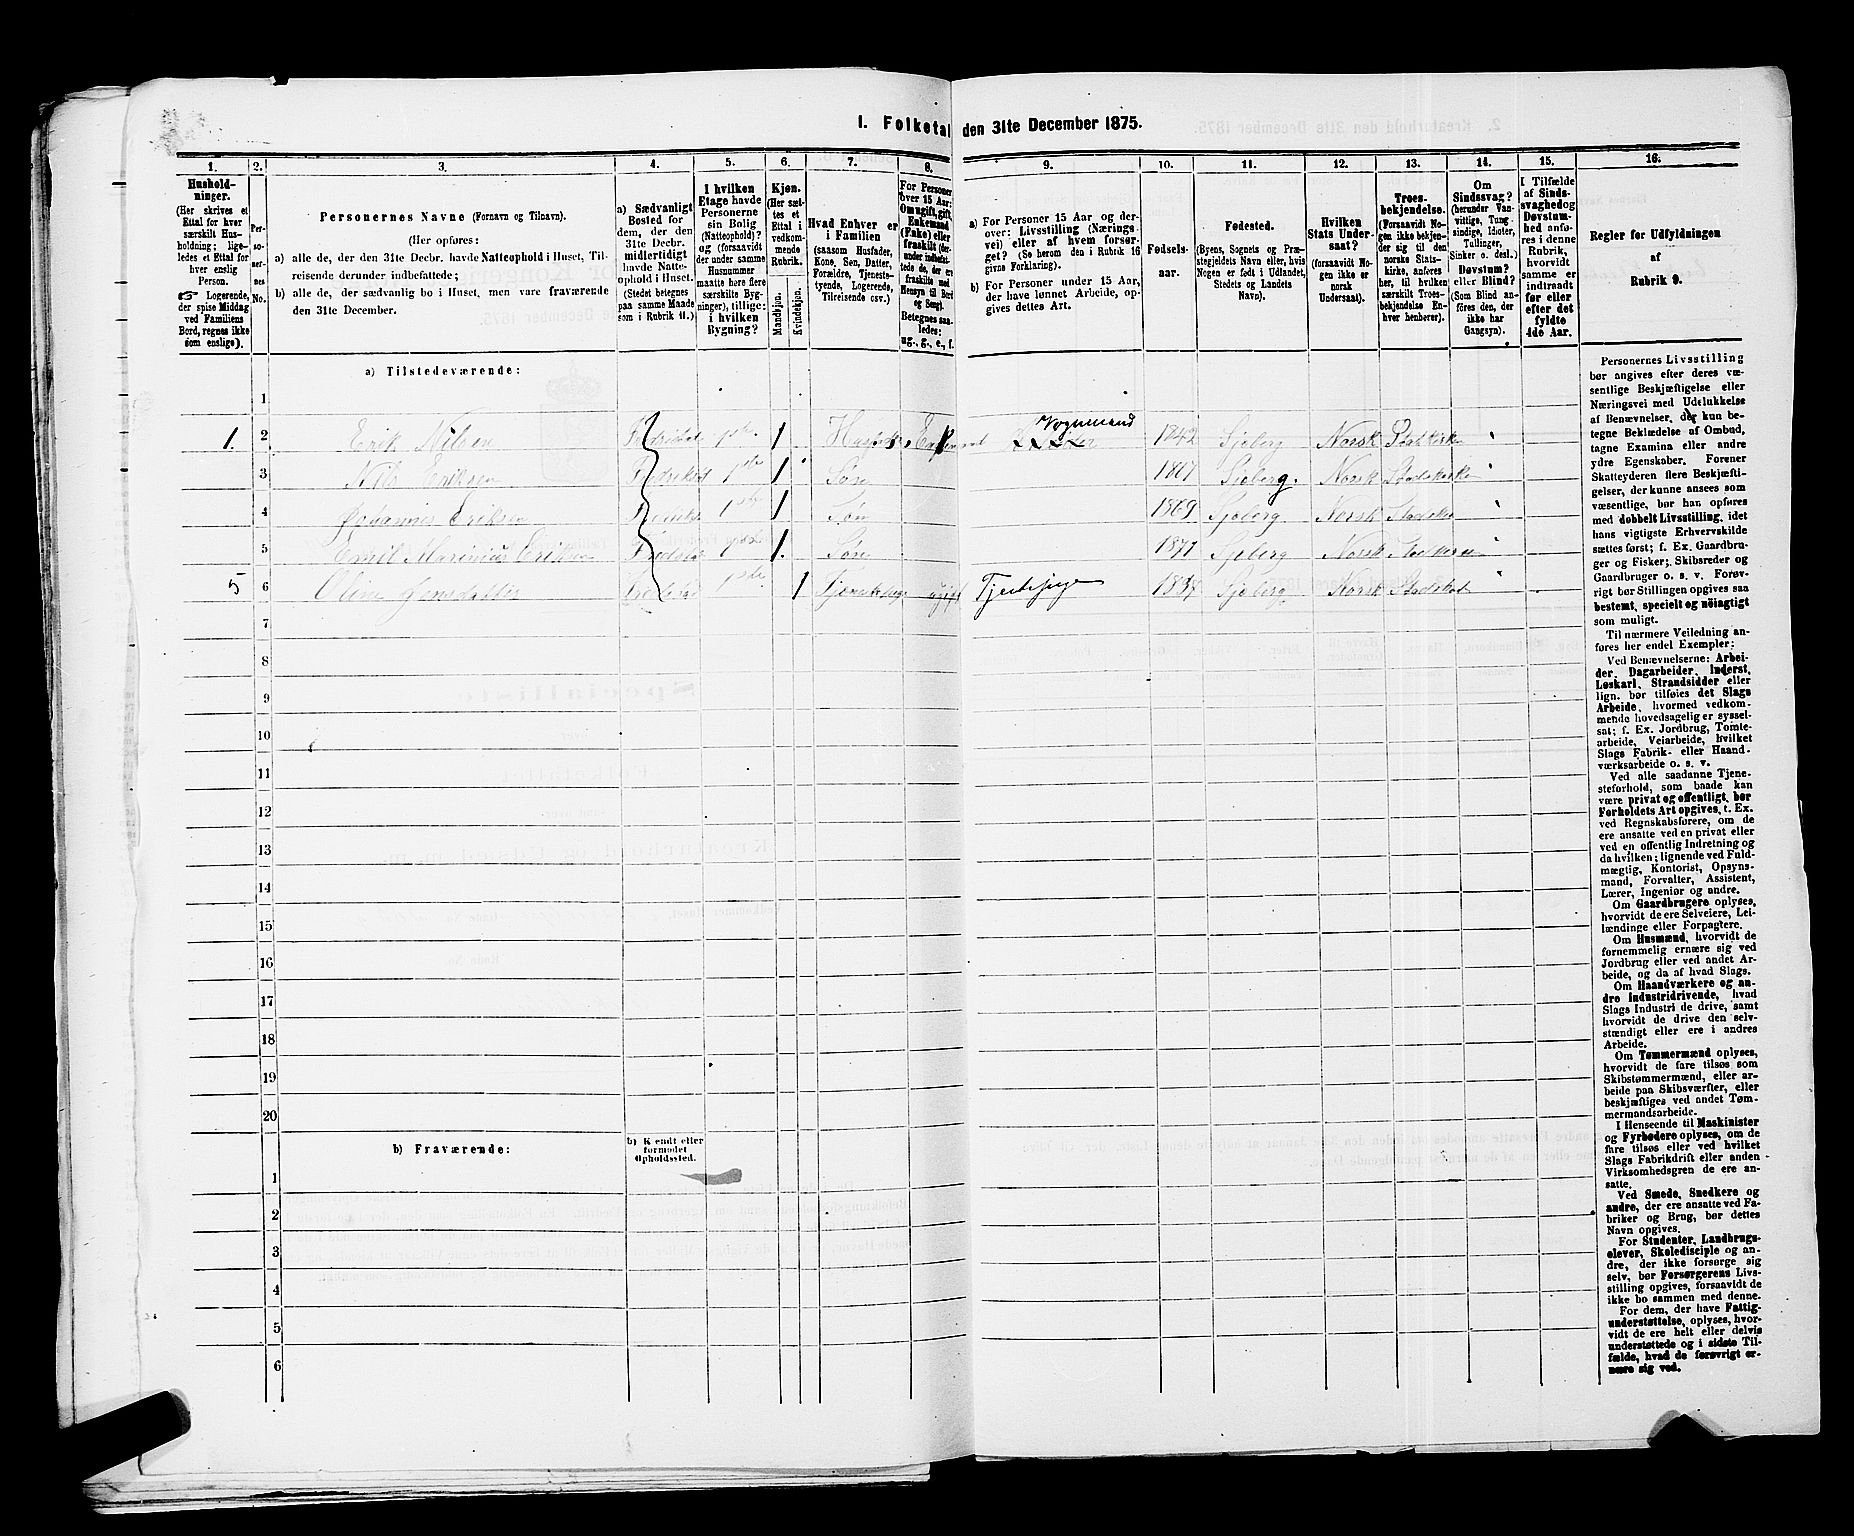 1. Folketal den 31te December 1875.
1. 2. 3. 4. 5. 6. 7. 8. 9. 10. 11. 12. 13. 14. 15. 16.
Hushold-
ninger.
(Her skrives et
Ettal for hver
særskilt Hus-
holdning; lige-
ledes et Ettal for
hver enslig
Person.
☞ Logerende,
der spise Middag
ved Familiens
Bord, regnes ikke
som enslige).
Per-
so-
ner-
nes
No.
Personernes Navne (Fornavn og Tilnavn).
(Her opføres:
a) alle de, der den 31te Decbr. havde Natteophold i Huset, Til-
reisende derunder indbefattede;
b) alle de, der sædvanlig bo i Huset, men vare fraværende
den 31te December.
a) Sædvanligt
Bosted for
dem, der den
31te Decbr.
midlertidigt
havde Natte-
ophold i Huset.
(Stedet betegnes
paa samme Maade
som i Rubrik 11.)
I hvilken
Etage havde
Personerne
sin Bolig
(Natteophold)?
og (forsaavidt
der under samme
Husnummer
maatte høre flere
særskilte Byg-
ninger), tillige:
i hvilken
Bygning?
Kjøn.
(Her sæt-
tes et
Ettal i
vedkom-
mende
Rubrik.
Mandkjøn.
Kvindekjøn.
Hvad Enhver er
i Familien
(saasom Husfader,
Kone, Søn, Datter,
Forældre, Tjeneste-
tyende, Logerende,
Tilreisende osv.)
For Personer
over 15 Aar:
Om ugift, gift,
Enkemand
(Enke) eller
fraskilt (der-
under indbefat-
tede de, der ere
fraskilte med
Hensyn til Bord
og Seng).
Betegnes saa-
ledes:
ug., g., e., f.
a) For Personer 15 Aar og der-
over: Livsstilling (Nærings-
vei) eller af hvem forsør-
get? (Se herom den i Rubrik 16
givne Forklaring).
b) For Personer under 15 Aar,
der have lønnet Arbeide, op-
gives dettes Art.
Fødsels-
aar.
Fødested.
(Byens, Sognets og Præ-
stegjeldets Navn eller, hvis
Nogen er født i Udlandet,
Stedets og Landets
Navn).
Hvilken
Stats Under-
saat?
(forsaavidt No-
gen ikke er
norsk
Undersaat).
Troes-
bekjendelse.
(Forsaavidt No-
gen ikke bekjen-
der sig til den
norske Stats-
kirke, anføres
her, til hvilken
særskilt Troes-
bekjendelse En-
hver henhører).
Om
Sindssvag?
(herunder Van-
vittige, Tung-
sindige, Idioter,
Tullinger,
Sinker o. desl.)
Døvstum?
eller Blind?
(Som Blind an-
føres den, der
ikke har
Gangsyn).
I Tilfælde
af Sinds-
svaghed og
Døvstum-
hed anføres
i denne
Rubrik,
hvorvidt
samme er
indtraadt
før eller
efter det
fyldte
4de Aar.
Regler for Udfyldningen
af
Rubrik 9.
a) Tilstedeværende:
1
1. 2 Erik Nilsen 1ste 1 Vognmand 1842 Sjøberg Norsk Statskirke
3 Nils Eriksen 1ste 1 Søn Sjøberg. Norsk Statskirke
4 Johannes Eriksen 1ste 1 Søn 1869 Sjøberg Norsk
5 Emil Marinius Eriksen 1 Søn 1871 Sjøberg Norsk
5 6 Oline 1ste 1 ugift 1837 Sjøberg Norsk
7
8
9
10
11
12
13
14
15
16
17
18
19
20
b) Fraværende:
b) Kjendt eller
formodet
Opholdssted.
1
2
3
4
5
6
Personernes Livsstilling
bør angives efter deres væ-
sentlige Beskjæftigelse eller
Næringsvei med Udelukkelse
af Benævnelser, der kun be-
tegne Beklædelse af Ombud,
tagne Examina eller andre
ydre Egenskaber. Forener
Skatteyderen flere Beskjæfti-
gelser, der kunne ansees som
væsentlige, bør han opføres
med dobbelt Livsstilling, idet
hans vigtigste Erhvervskilde
sættes først; f. Ex. Gaardbru-
ger og Fisker; Skibsreder og
Gaardbruger o. s. v. Forøv-
rigt bør Stillingen opgives saa
bestemt, specielt og nöiagtigt
som muligt.
Til nærmere Veiledning an-
føres her endel Exempler:
Ved Benævnelserne: Arbei-
der, Dagarbeider, Inderst,
Løskarl, Strandsidder eller
lign. bør tilføies det Slags
Arbeide, hvormed vedkom-
mende hovedsagelig er syssel-
sat; f. Ex. Jordbrug, Tomte-
arbeide, Veiarbeide, hvilket
Slags Fabrik- eller Haand-
værksarbeide o. s. v.
Ved alle saadanne Tjene-
steforhold, som baade kan
være privat og offentligt, bør
Forholdets Art opgives, t. Ex.
ved Regnskabsførere, om de
ere ansatte ved en privat eller
ved en offentlig Indretning og
da hvilken; lignende ved Fuld-
mægtig, Kontorist, Opsyns-
mand, Forvalter, Assistent,
Lærer, Ingeniør og andre.
Om Gaardbrugere oplyses,
hvorvidt de ere Selveiere, Lei-
lændinge eller Forpagtere.
Om Husmænd, hvorvidt de
fornemmelig ernære sig ved
Jordbrug eller ved andet Ar-
beide, og da af hvad Slags.
Om Haandværkere og an-
dre Industridrivende, hvad
Slags Industri de drive, samt
hvorvidt de drive den selv-
stændigt eller ere i andres
Arbeide.
Om Tømmermænd oplyses,
hvorvidt de fare tilsøs som
Skibstømmermænd, eller ar-
beide paa Skibsværfter, eller
beskjæftiges ved andet Tøm-
mermandsarbeide.
I Henseende til Maskinister
og Fyrbødere oplyses, om de
fare tilsøs eller ved hvilket
Slags Fabrikdrift eller anden
Virksomhedsgren de ere an-
satte.
Ved Smede, Snedkere og
andre, der ere ansatte ved Fa-
briker og Brug, bør dettes
Navn opgives.
For Studenter, Landbrugs-
elever, Skoledisciple og an-
dre, der ikke forsørge sig
selv, bør Forsørgerens Livs-
stilling opgives, forsaavidt de
ikke bo sammen med denne.
For dem, der have Fattig-
understøttelse, oplyses, hvor-
vidt de ere helt eller delvis
understøttede og i sidste Til-
fælde, hvad de forøvrigt er-
nære sig ved.